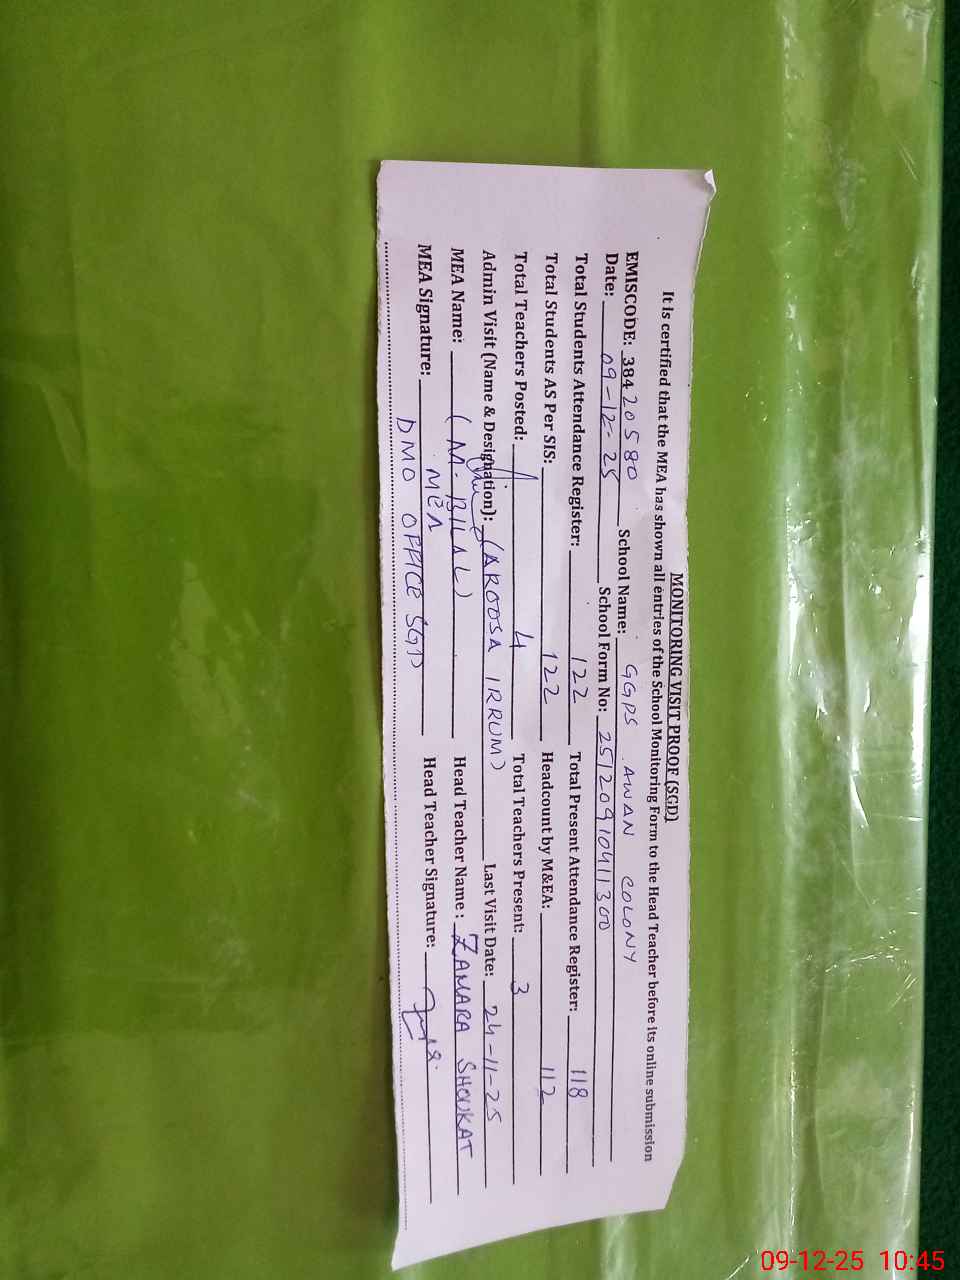 MONITORING VISIT PROOF (SGD)
It is certified that the MEA has shown all entries of the School Monitoring Form to the Head Teacher before its online submission
EMISCODE: 38420580 School Name: GGPS AWAN COLONY
Date: 09-12-25 School Form No: 25120910411300
Total Students Attendance Register: 122 Total Present Attendance Register: 118
Total Students AS Per SIS: 122 Headcount by M&EA: 112
Total Teachers Posted: 4 Total Teachers Present: 3
Admin Visit (Name & Designation): (AROOSA IRRUM) Last Visit Date: 24-11-25
MEA Name: (M. BILAL) Head Teacher Name: ZAMARA SHOUKAT
MEA Signature: MEA Head Teacher Signature:
DMO OFFICE SGD
09-12-25 10:45